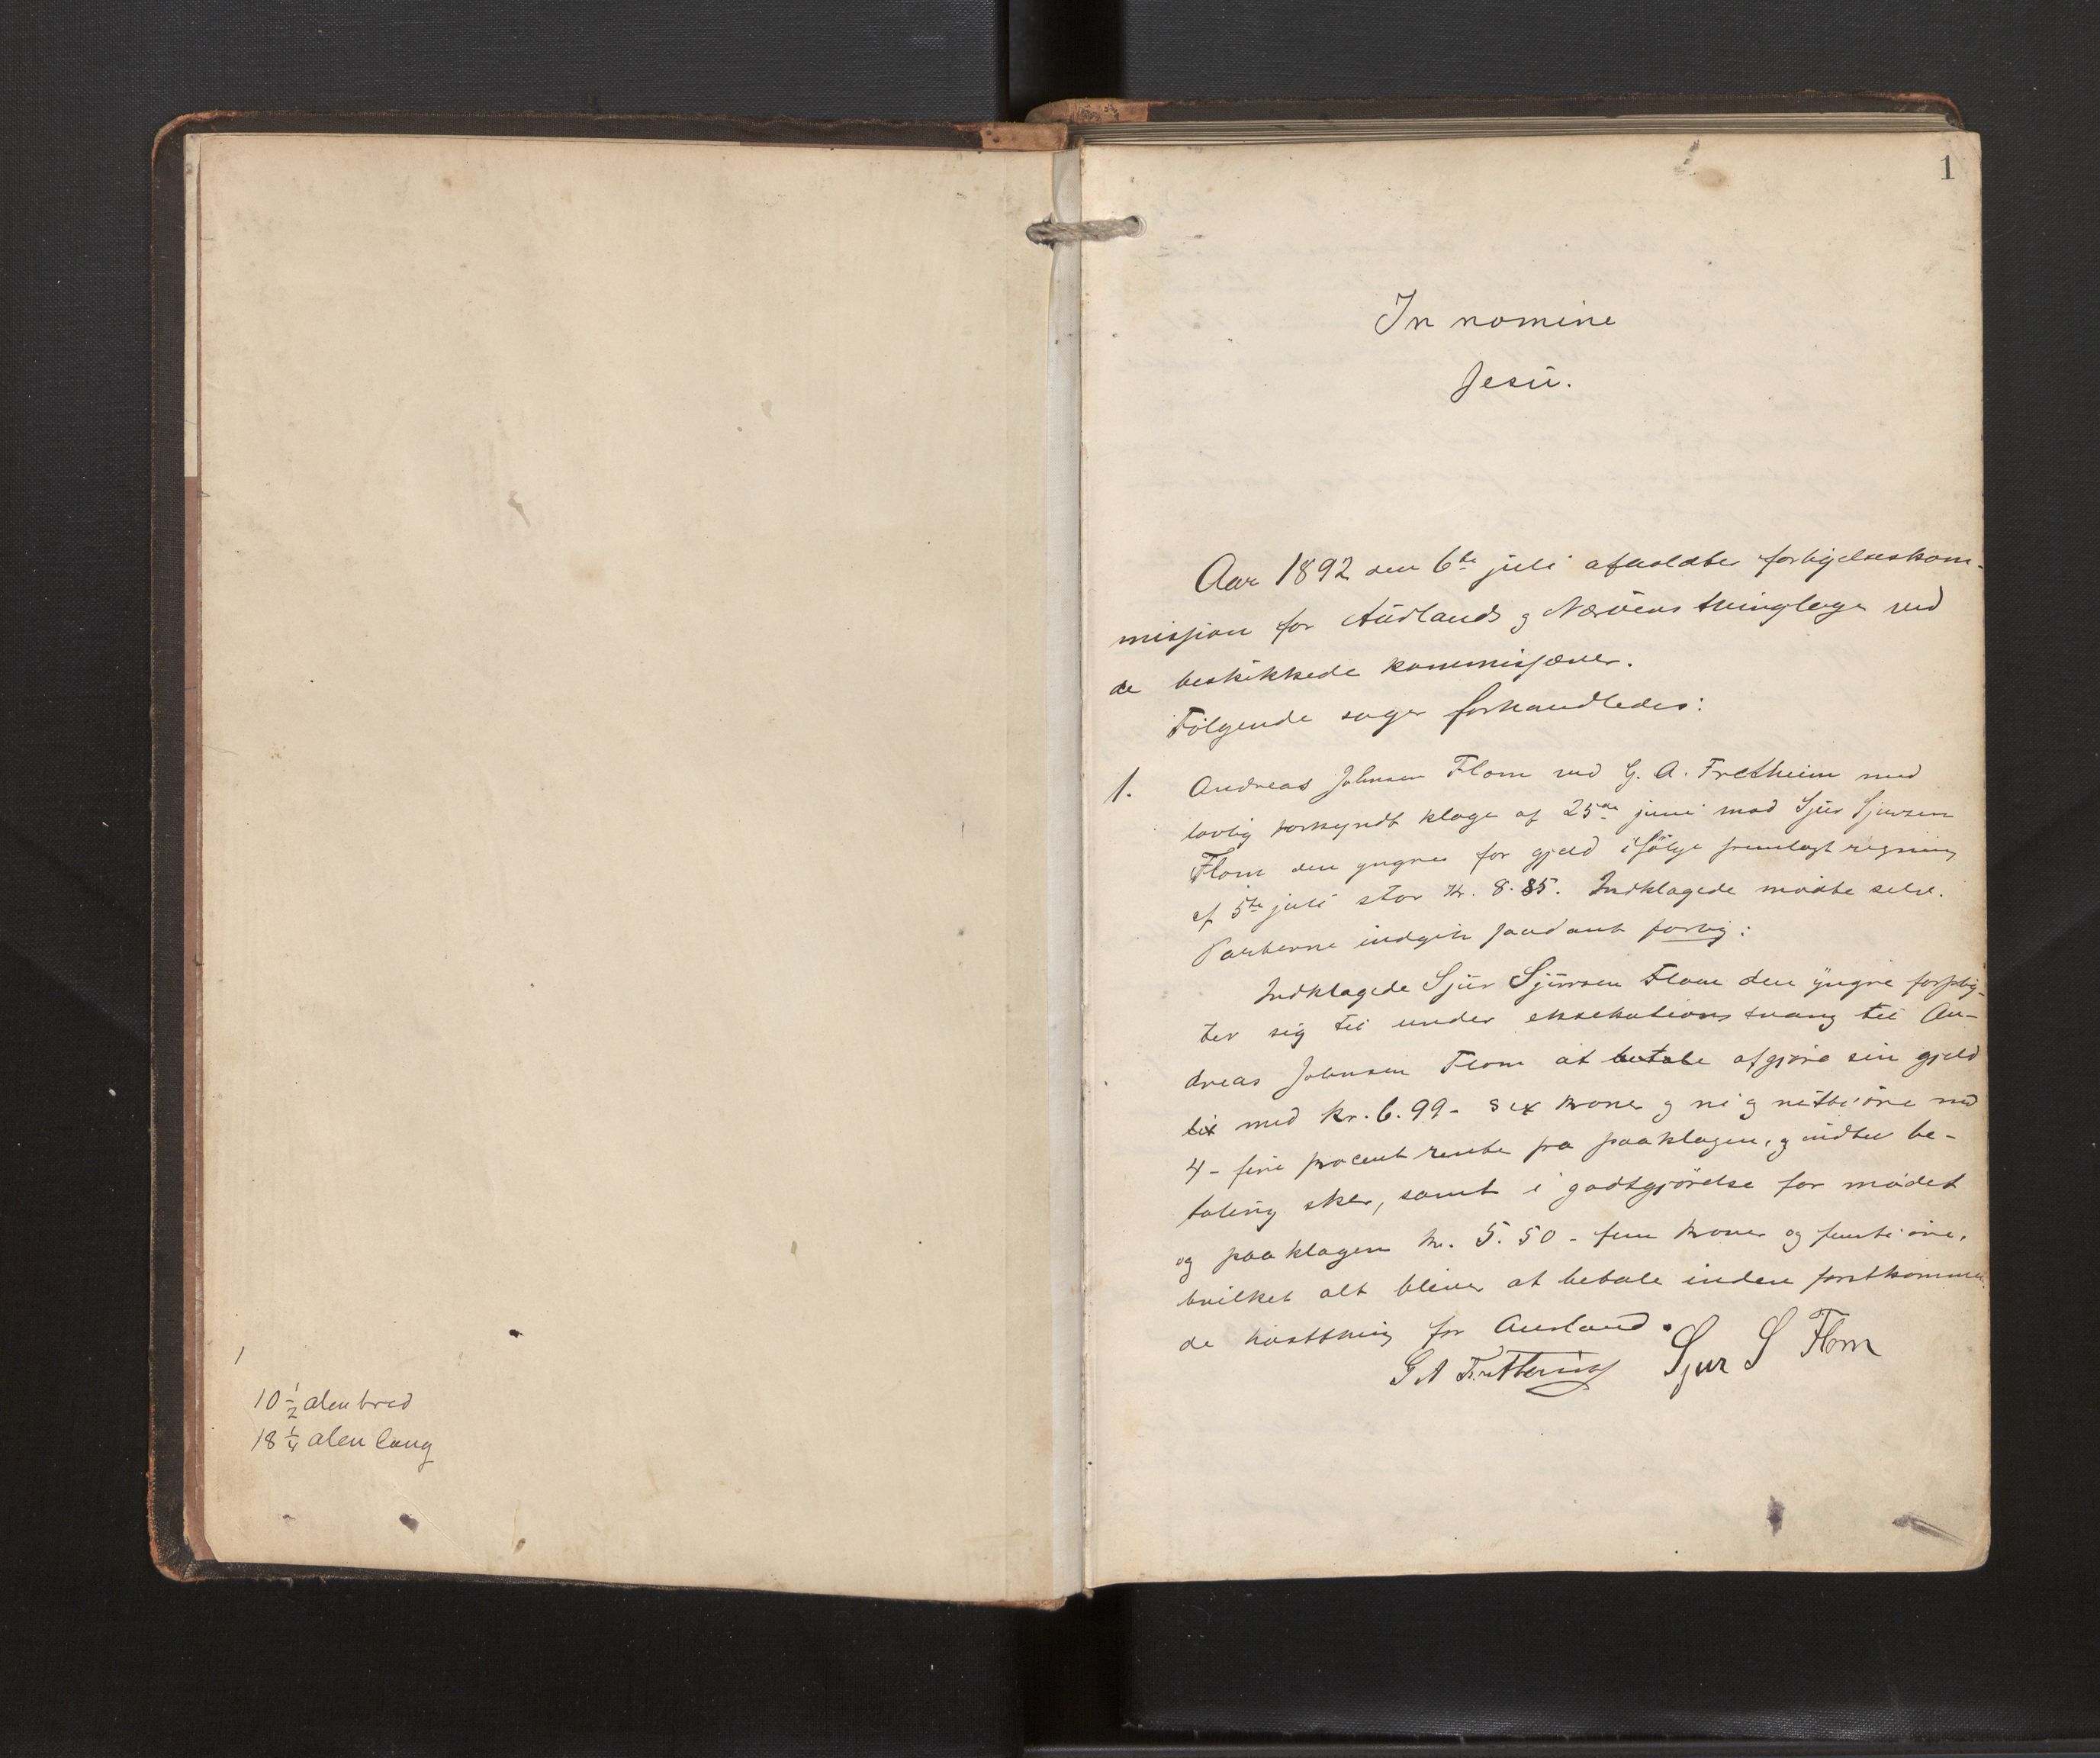 10 1/2 alen bred
18 1/4 alen lang
1
In nomine
Jesu.
Aar 1892 den 6te juli afholdtes forligelseskom-
mission for Aurlands og Nærøens thinglage ved
de beskikkede kommissærer.
Følgende sager forhandledes:
1. Andreas Johnsen Flom ved G. A. Fretheim med
lovlig forkyndt klage af 25de juni mod Sjur Sjursen
Flom den yngre for gjeld ifølge fremlagt regning
af 5te juli stor kr. 8.85. Indklagede mødte selv.
Parterne indgik saadant forlig:
Indklagede Sjur Sjursen Flom den yngre forplig-
ter sig til under eksekutions tvang til An-
dreas Johnsen Flom at betale afgjøre sin gjeld
med kr. 6.99 - sex kroner og ni og nitti øre med
4 - fire procent rente fra paaklagen, og indtil be-
taling sker, samt i godtgjørelse for mødet
og paaklagen kr. 5.50 - fem kroner og femti øre,
hvilket alt bliver at betale inden førstkommen-
de høstthing for Aurland.
G A Fretheim Sjur S Flom